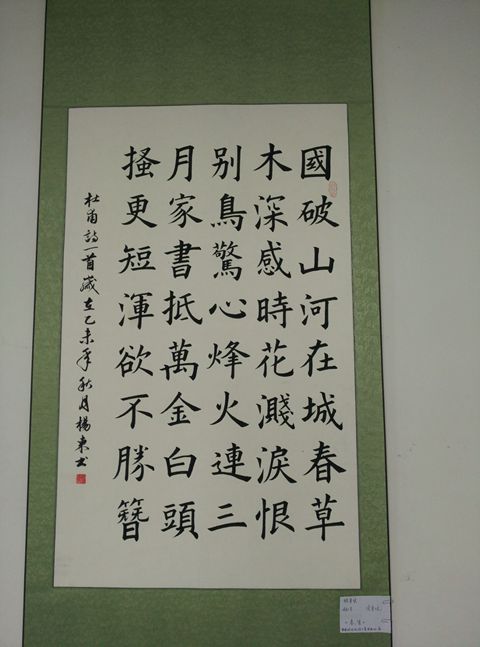 國破山河在城春草
木深感時花濺淚恨
别鳥驚心烽火連三
月家書抵萬金白頭
搔更短渾欲不勝簪
杜甫詩一首歲在乙未年秋月楊東书